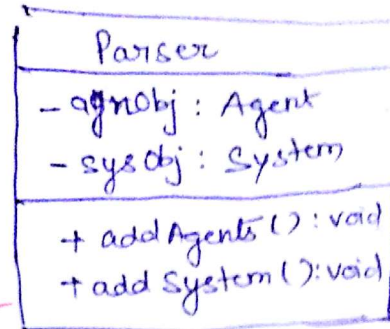 Parser
- agnObj : Agent
- sysObj : System
+ addAgents () : void
+ addSystem () : void